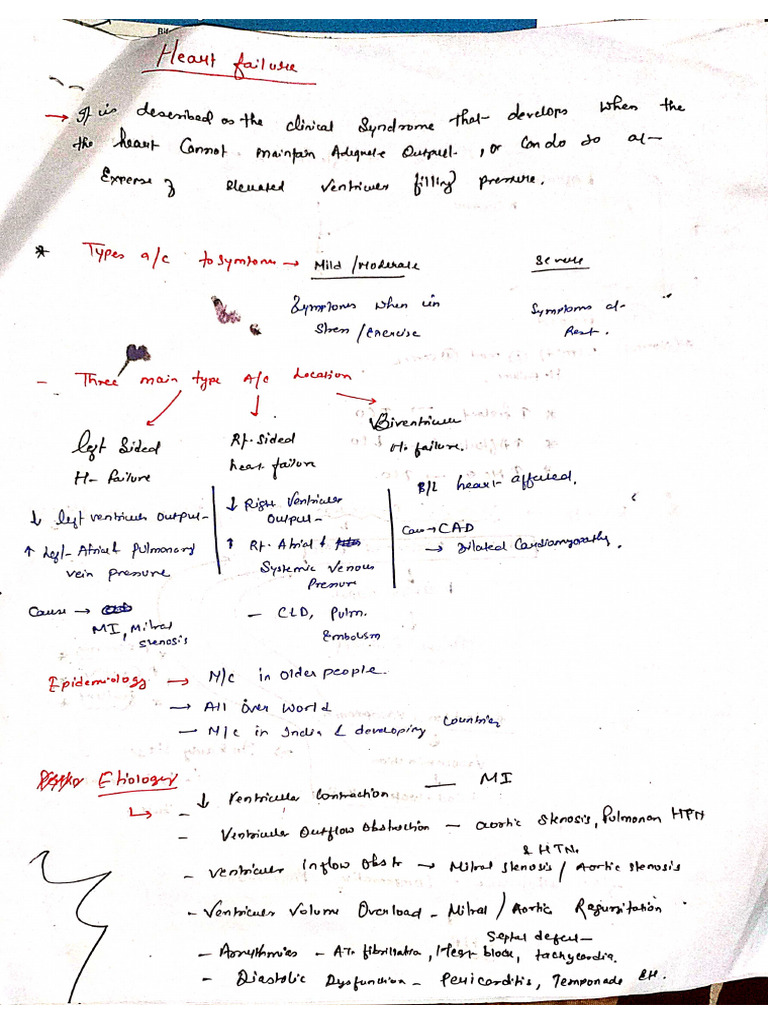 Heart failure
→ It is described as the clinical Syndrome that develops when the
the heart Cannot maintain Adequate Output, or Can do so at
Expense of elevated ventricular filling pressure.
* Types a/c to Symptoms → Mild /Moderate Severe
Symptoms when in Symptoms at
Stress / Exercise Rest.
- Three main type A/c Location
left Sided Rt. Sided Biventricular
H- failure heart failure H. failure.
↓ left ventricular output ↓ Right Ventricular Output B/L heart affected.
↑ left Atrial & Pulmonary ↑ Rt. Atrial & Cause → CAD
vein pressure Systemic Venous Pressure → Dilated Cardiomyopathy.
Cause → - CLD, Pulm.
MI, Mitral Embolism
Stenosis
Epidemiology → M/c in older people.
→ All over World
→ M/c in India & developing Countries
Etiology
↳ - ↓ Ventricular Contraction — MI
- Ventricular Outflow Obstruction - aortic Stenosis, Pulmonary HPN
& HTN.
- Ventricular Inflow Obstr → Mitral Stenosis / Aortic Stenosis
- Ventricular Volume Overload - Mitral / Aortic Regurgitation
Septal defect
- Arrythmias - At. fibrillation, Heart block, tachycardia.
- Diastolic Dysfunction - Pericarditis, Temponade